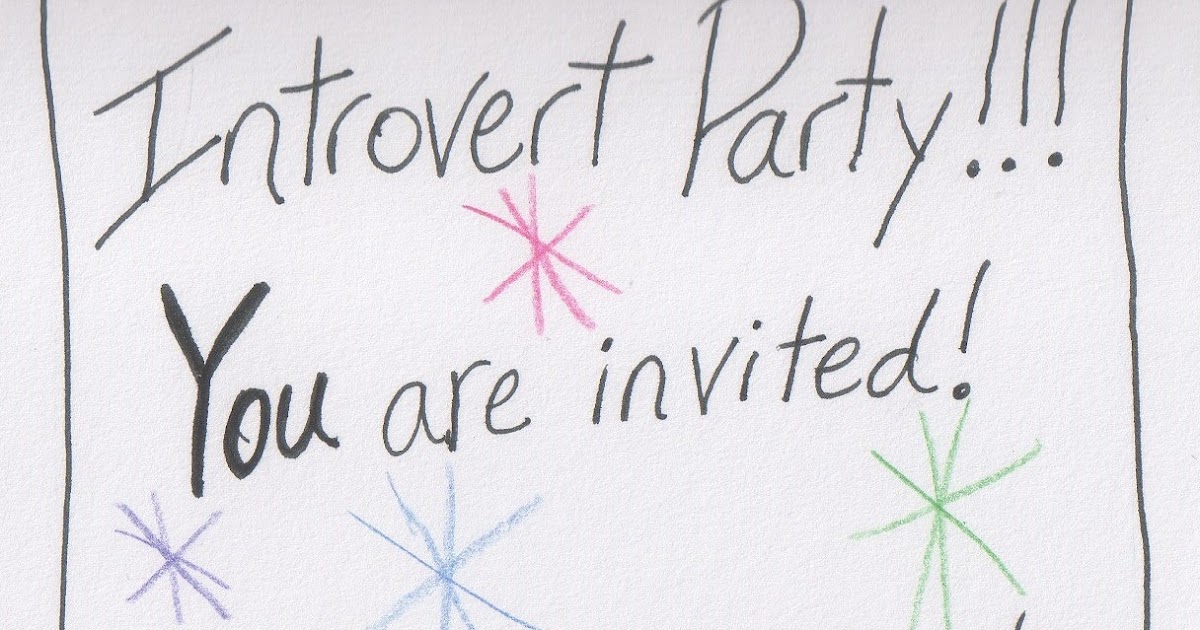 Introvert Party!!!
You are invited!